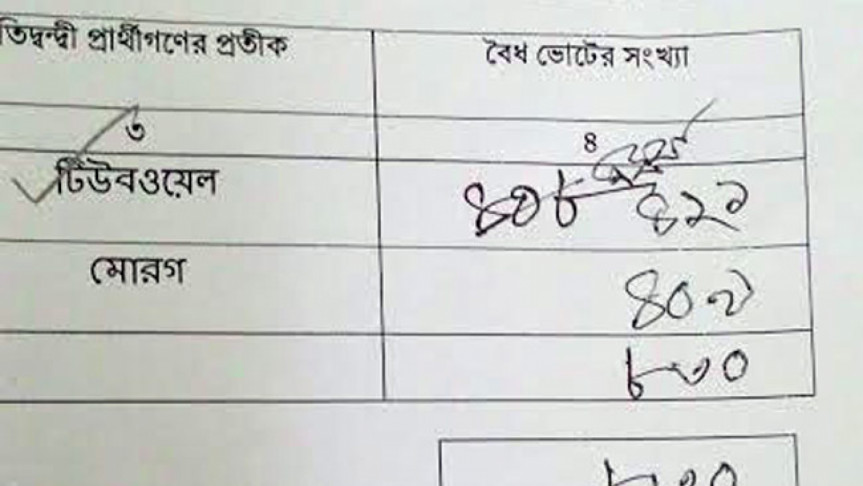 তিদ্বন্দ্বী প্রার্থীগণের প্রতীক বৈধ ভোটের সংখ্যা
৩ ৪
টিউবওয়েল ৪০৮ ৪২১
মোরগ ৪০৯
৮৩০
৮৩০